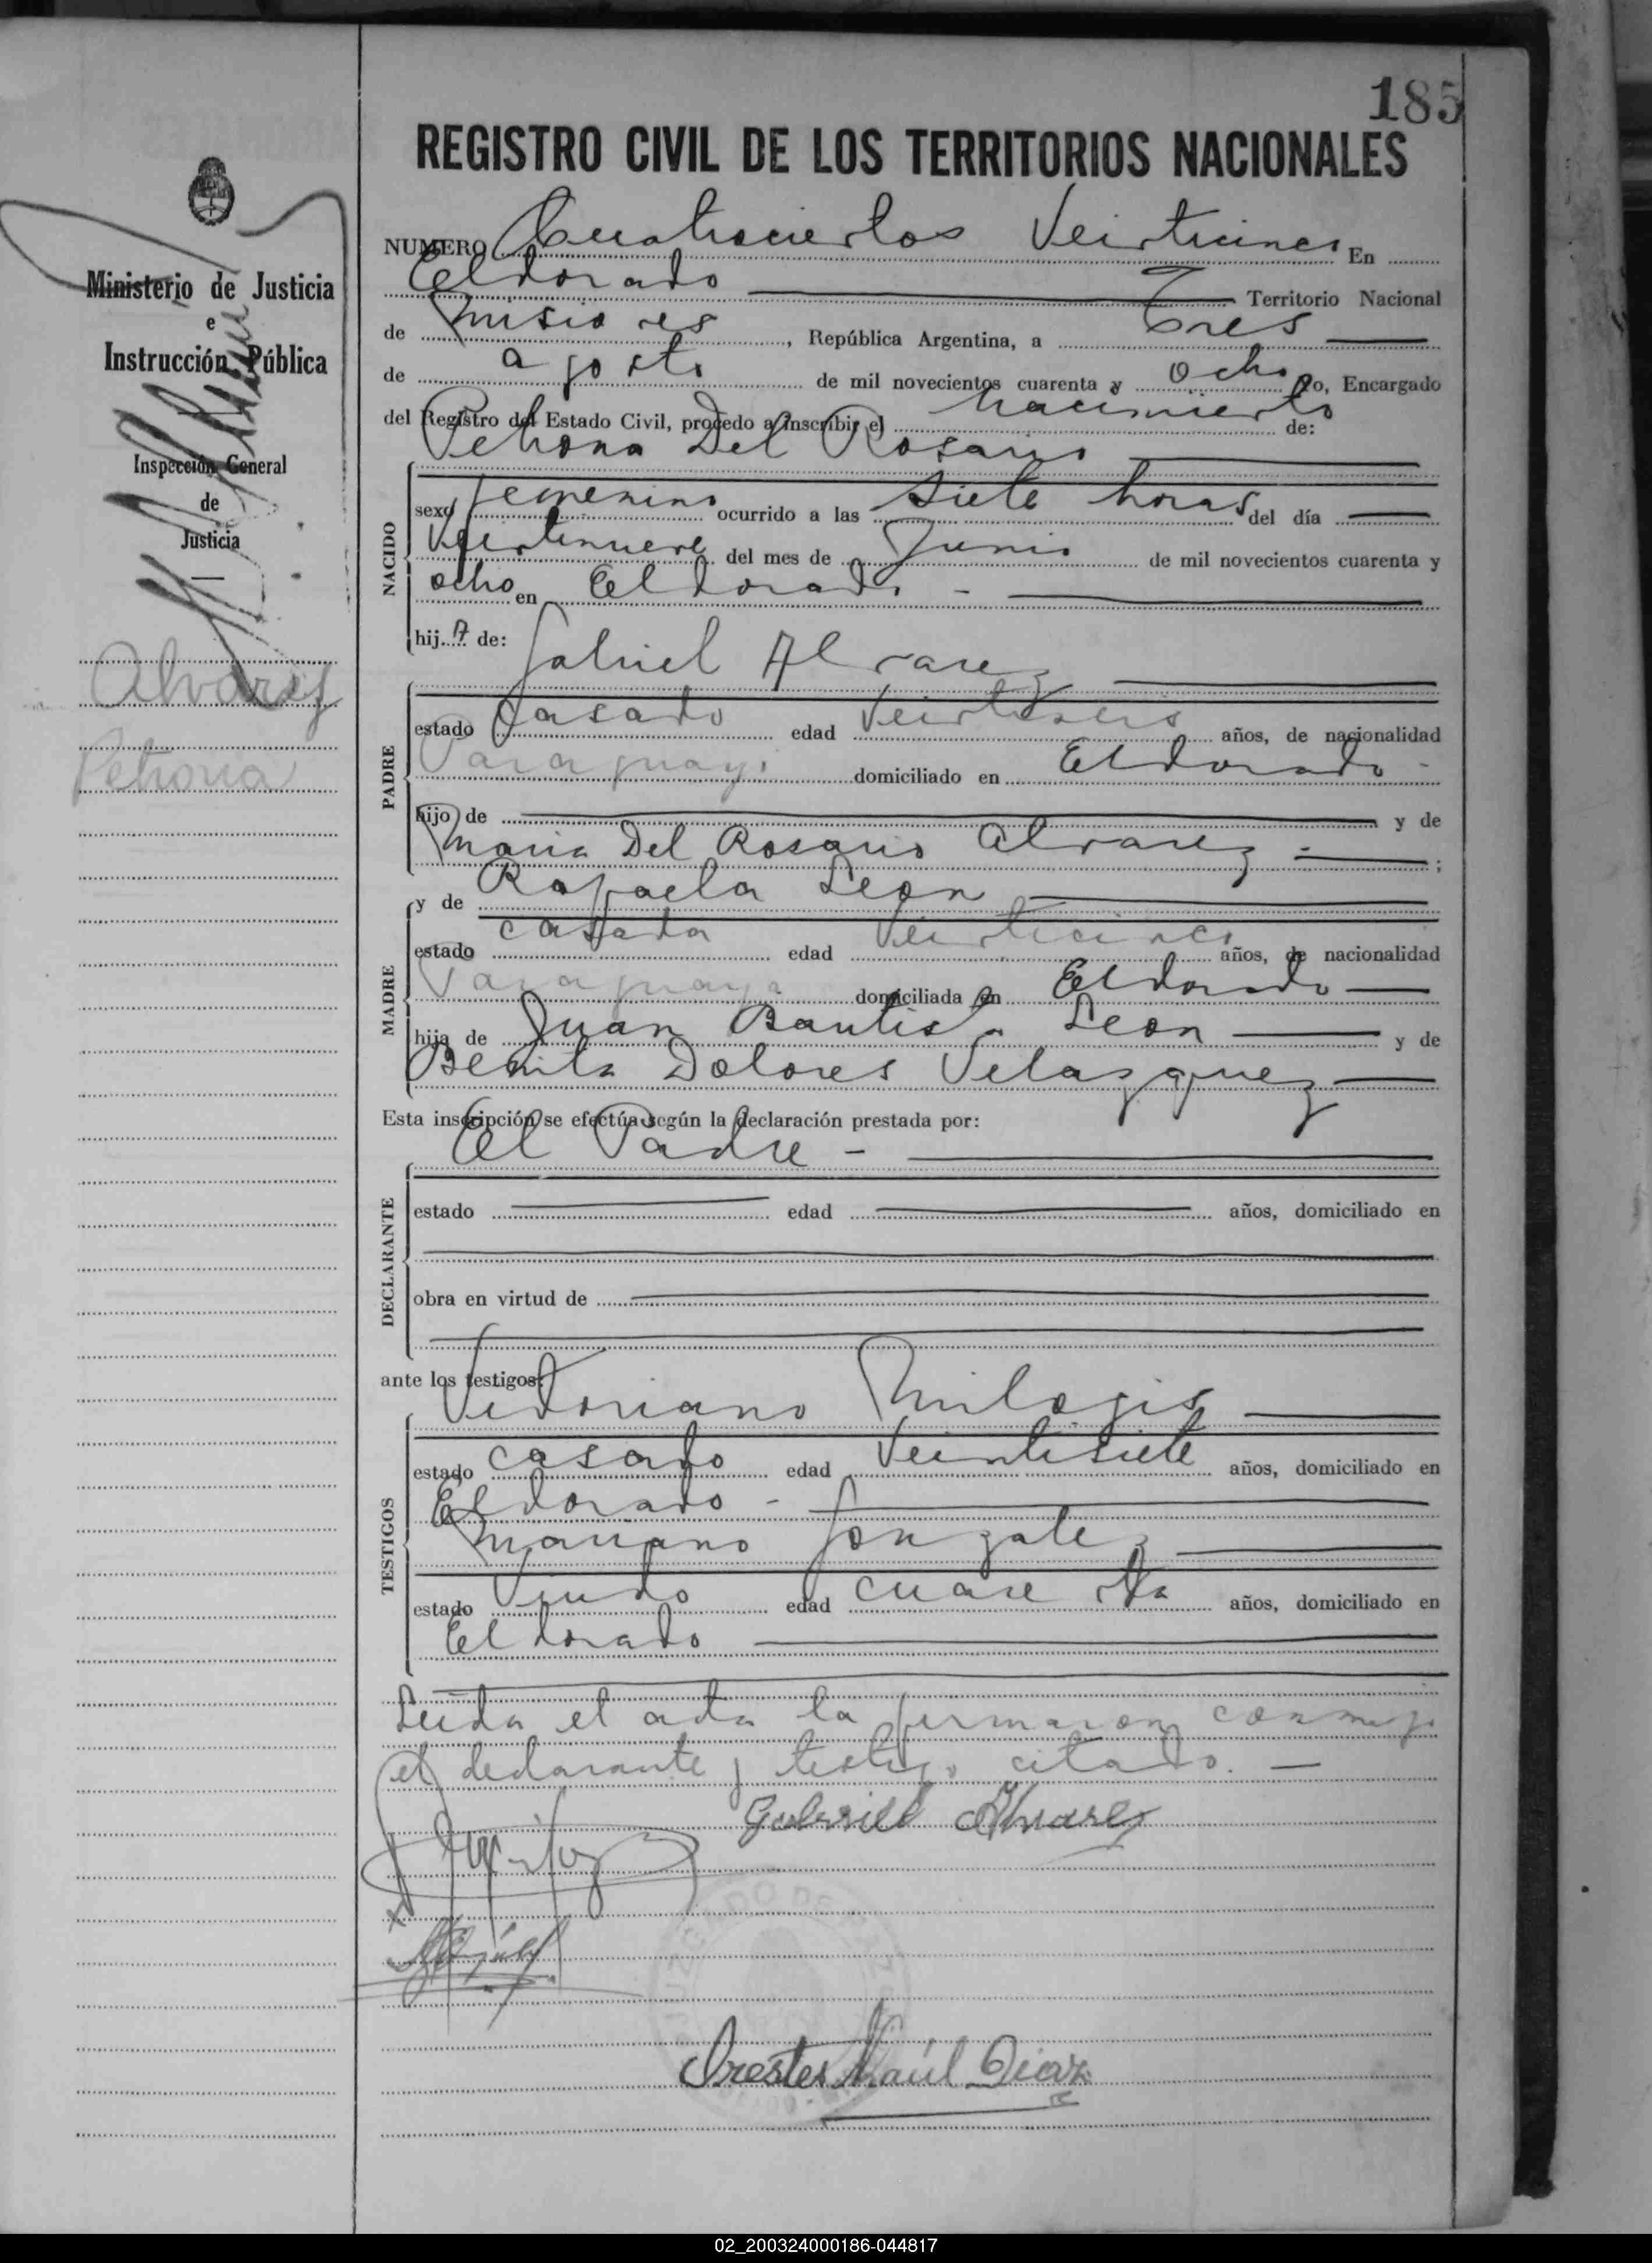 185
REGISTRO CIVIL DE LOS TERRITORIOS NACIONALES
Ministerio de Justicia
e
Instrucción Pública
Inspección General
de
Justicia
Alvarez
Petrona
NUMERO Cuatrocientos Veinticinco En
Eldorado Territorio Nacional
de Misiones, República Argentina, a Tres
de agosto de mil novecientos cuarenta y ocho Yo, Encargado
del Registro del Estado Civil, procedo a inscribir el nacimiento de:
Petrona Del Rosario
NACIDO
sexo femenino ocurrido a las siete horas del día
Veintinueve del mes de Junio de mil novecientos cuarenta y
ocho en Eldorado -
hija de: Gabriel Alvarez
PADRE
estado Casado edad Veintiseis años, de nacionalidad
Paraguayo domiciliado en Eldorado -
hijo de y de
Maria Del Rosario Alvarez - ;
y de Rafaela Leon
MADRE
estado casada edad Veinticinco años, de nacionalidad
Paraguaya domiciliada en Eldorado
hija de Juan Bautista Leon y de
Benita Dolores Velazquez
Esta inscripción se efectúa según la declaración prestada por:
El Padre -
DECLARANTE
estado edad años, domiciliado en
obra en virtud de
ante los testigos:
Victoriano
TESTIGOS
estado casado edad Veintisiete años, domiciliado en
Eldorado -
Mariano Gonzalez
estado Viudo edad cuarenta años, domiciliado en
Eldorado
Leida el acta la firmaron conmigo
el declarante y testigo citado. -
Gabriel Alvarez
Orestes Raúl Diaz
02_200324000186-044817